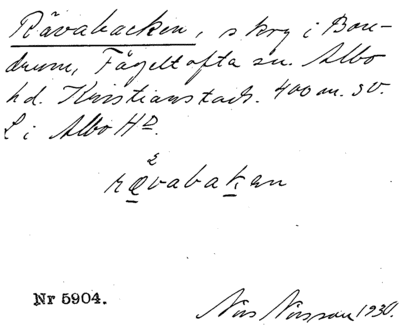 Rävabacken, skog i Bon-
drum, Fågeltofta sn. Albo
hd. Kristianstads. 400 m. SV.
L i Albo HD.
rävabakan
Nr 5904.
Nils Nilsson 1930.